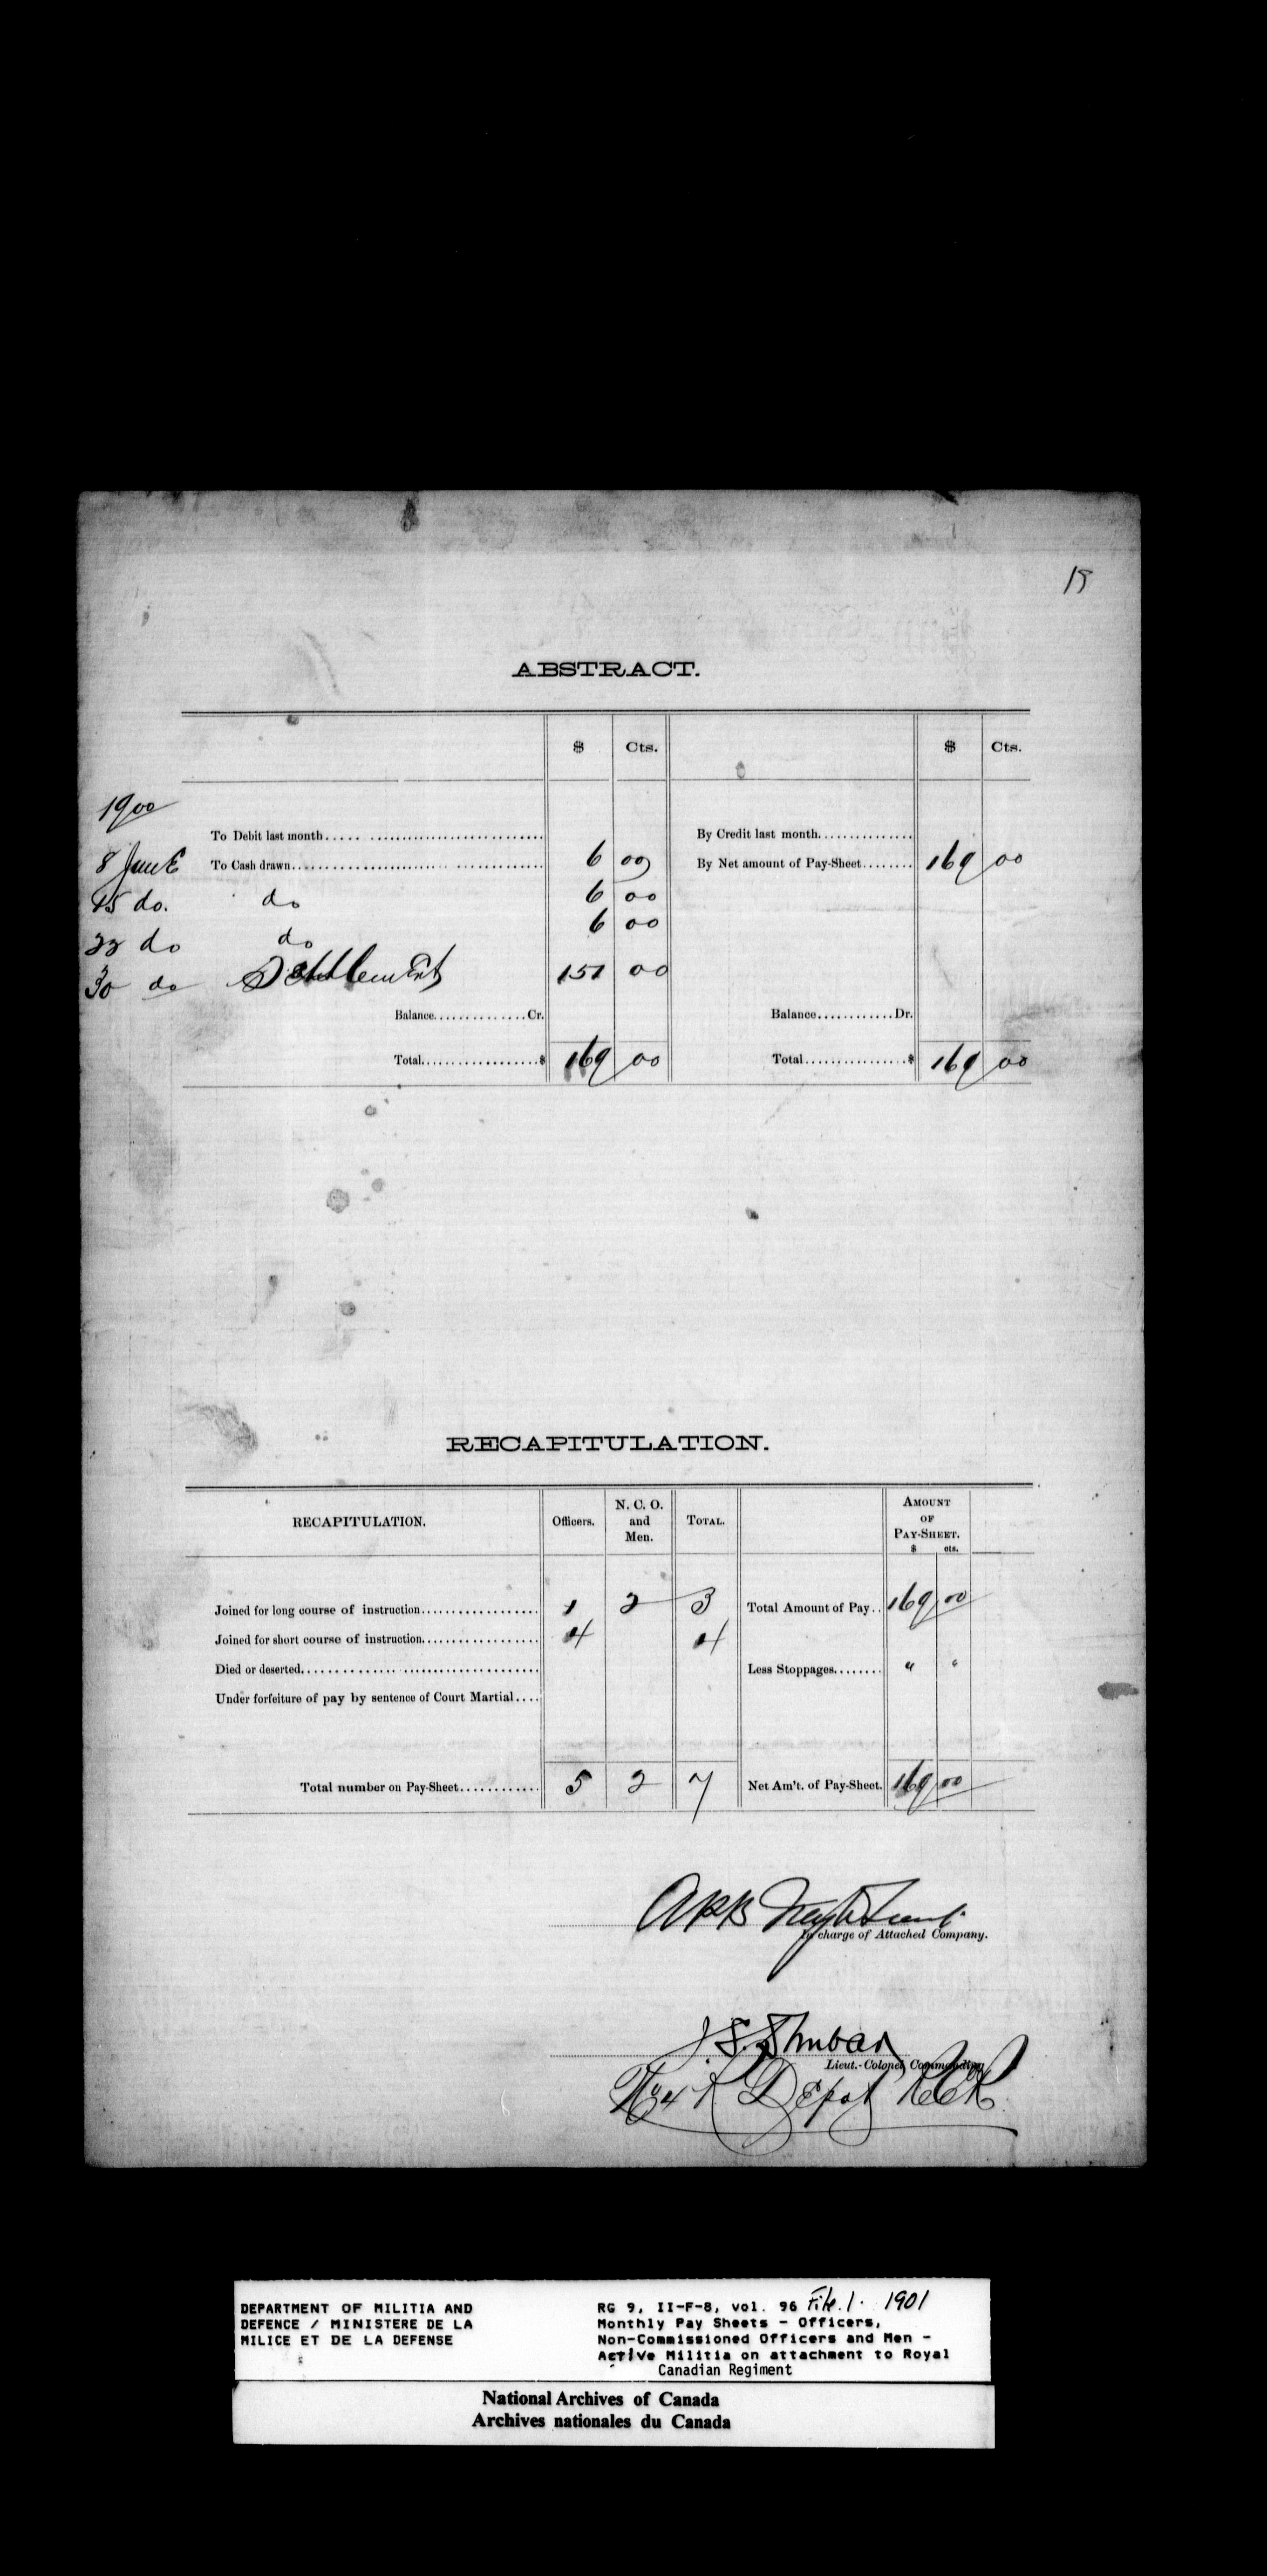 19
ABSTRACT.
$ Cts. $ Cts.
1900
To Debit last month By Credit last month
8 June To Cash drawn 6 00 By Net amount of Pay-Sheet 169 00
15 do. do 6 00
22 do do 6 00
30 do Settlement 151 00
Balance Cr. Balance Dr.
Total $ 169 00 Total $ 169 00
RECAPITULATION.
RECAPITULATION. Officers. N. C. O. and Men. TOTAL. AMOUNT OF PAY-SHEET. $ cts.
Joined for long course of instruction 1 2 3 Total Amount of Pay 169 00
Joined for short course of instruction 4 4
Died or deserted Less Stoppages " "
Under forfeiture of pay by sentence of Court Martial
Total number on Pay-Sheet 5 2 7 Net Am't. of Pay-Sheet. 169 00
In charge of Attached Company.
Lieut.-Colonel Commanding
No 4 R. Depot RCR
DEPARTMENT OF MILITIA AND
DEFENCE / MINISTERE DE LA
MILICE ET DE LA DEFENSE
RG 9, II-F-8, vol. 96 File. 1. 1901
Monthly Pay Sheets - Officers,
Non-Commissioned Officers and Men -
Active Militia on attachment to Royal
Canadian Regiment
National Archives of Canada
Archives nationales du Canada